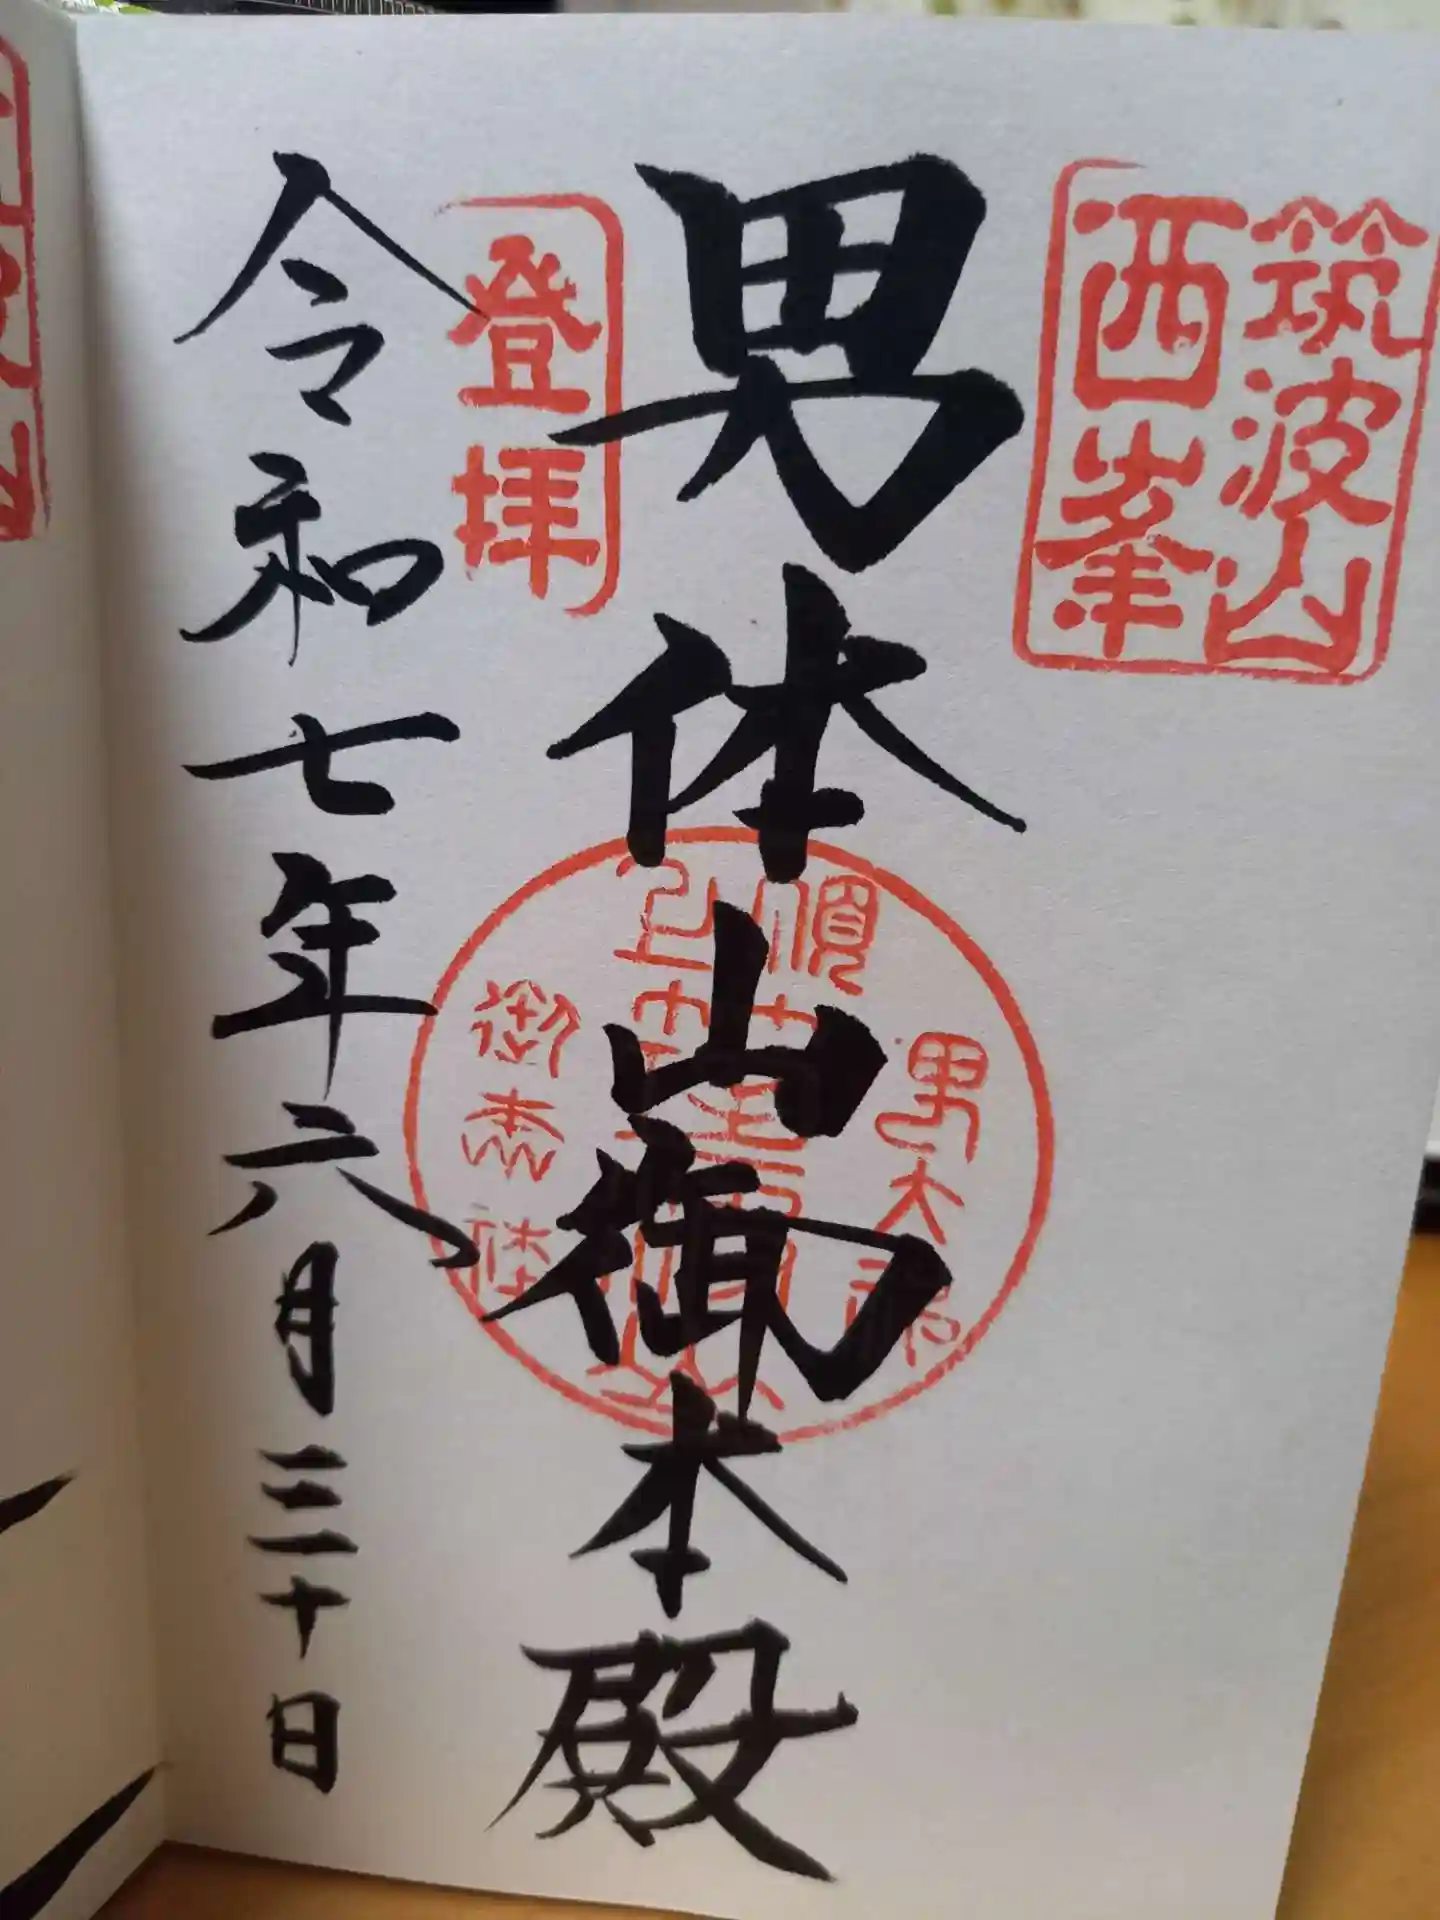 筑波山
西峯
男体山御本殿
登拝
令和七年六月三十日
男大神
御本体